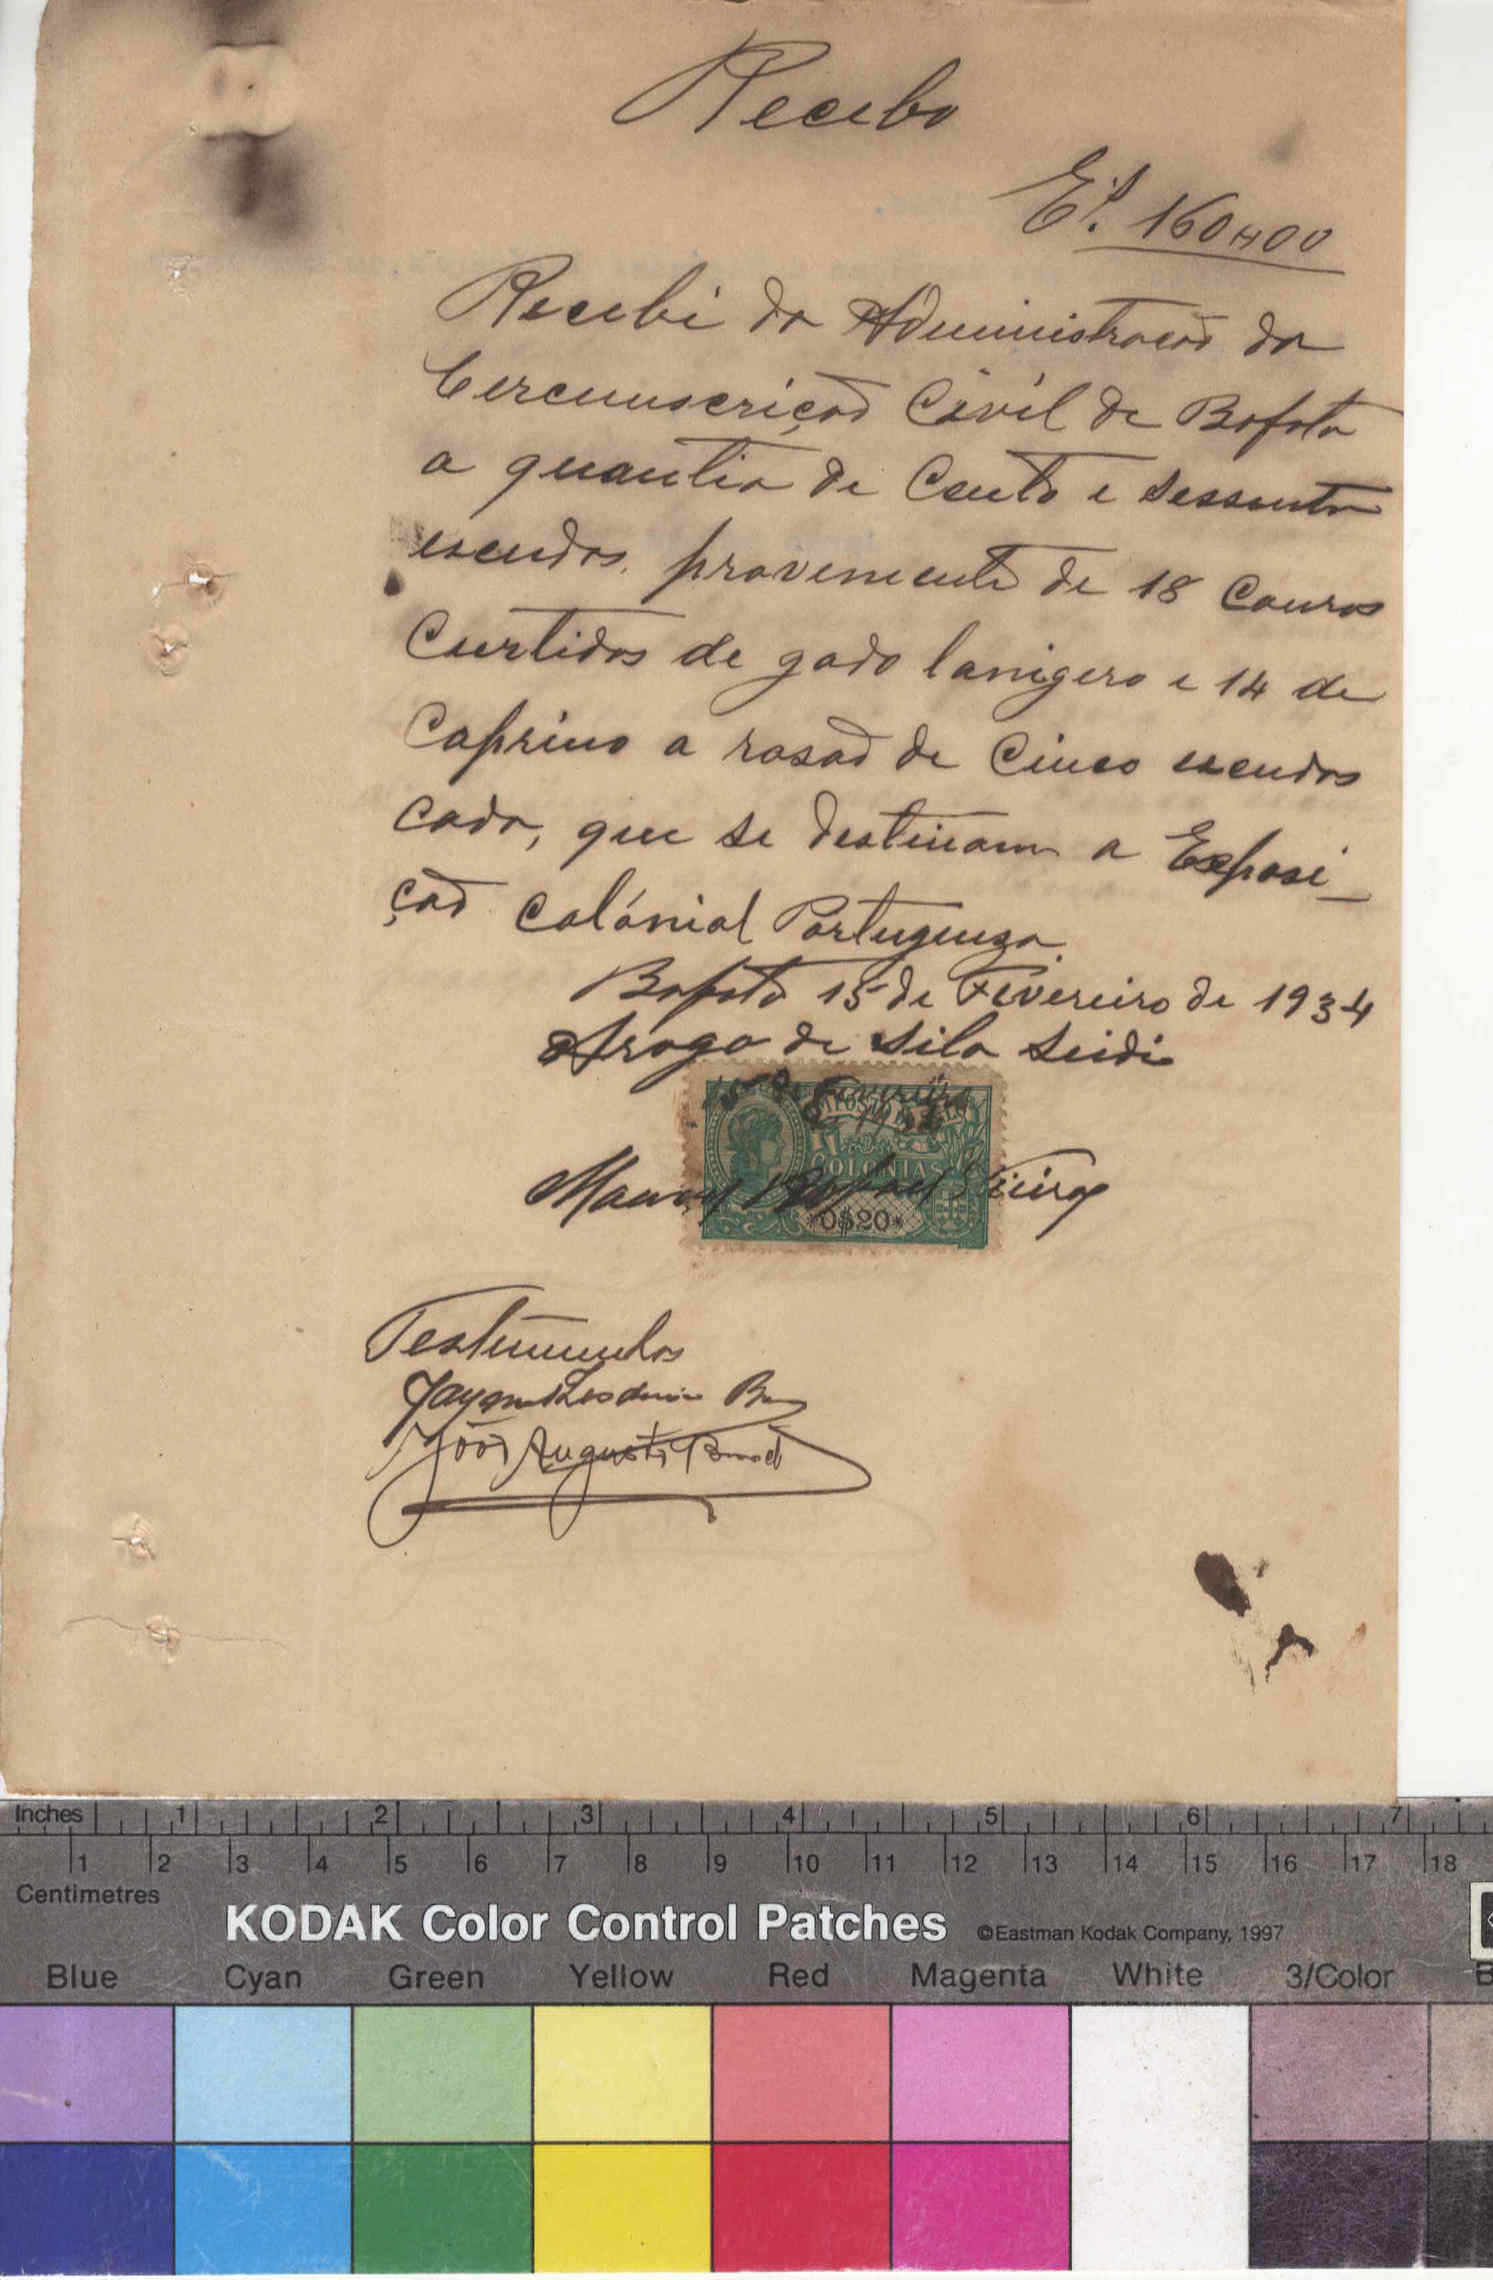 Recebo
Es. 160$00
Recebi da Administracão da
Cercunscrição Cívil de Bafata
a quantia de Cento e sessenta
escudos, proveniente de 18 Couros
Curtidos de gado lanigero e 14 de
Caprino a rasão de Cinco escudos
cada, que se destinam a Exposi-
ção Colónial Portugueza.
Bafatá 15 de Fevereiro de 1934
Arogo de Sila Seidi
15 de Fevereiro
1934
IMPOSTO DO SELO
COLONIAS
*0$20*
Manuel Raphael Vieira
Testemunhas
João Augusto
Inches 1 2 3 4 5 6 7
1 2 3 4 5 6 7 8 9 10 11 12 13 14 15 16 17 18
Centimetres
KODAK Color Control Patches ©Eastman Kodak Company, 1997
Blue Cyan Green Yellow Red Magenta White 3/Color B